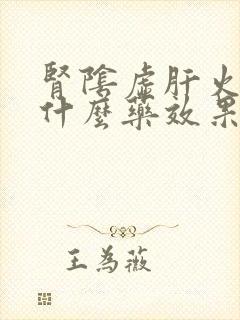 腎陰虛肝火
什麼藥效果
王為薇